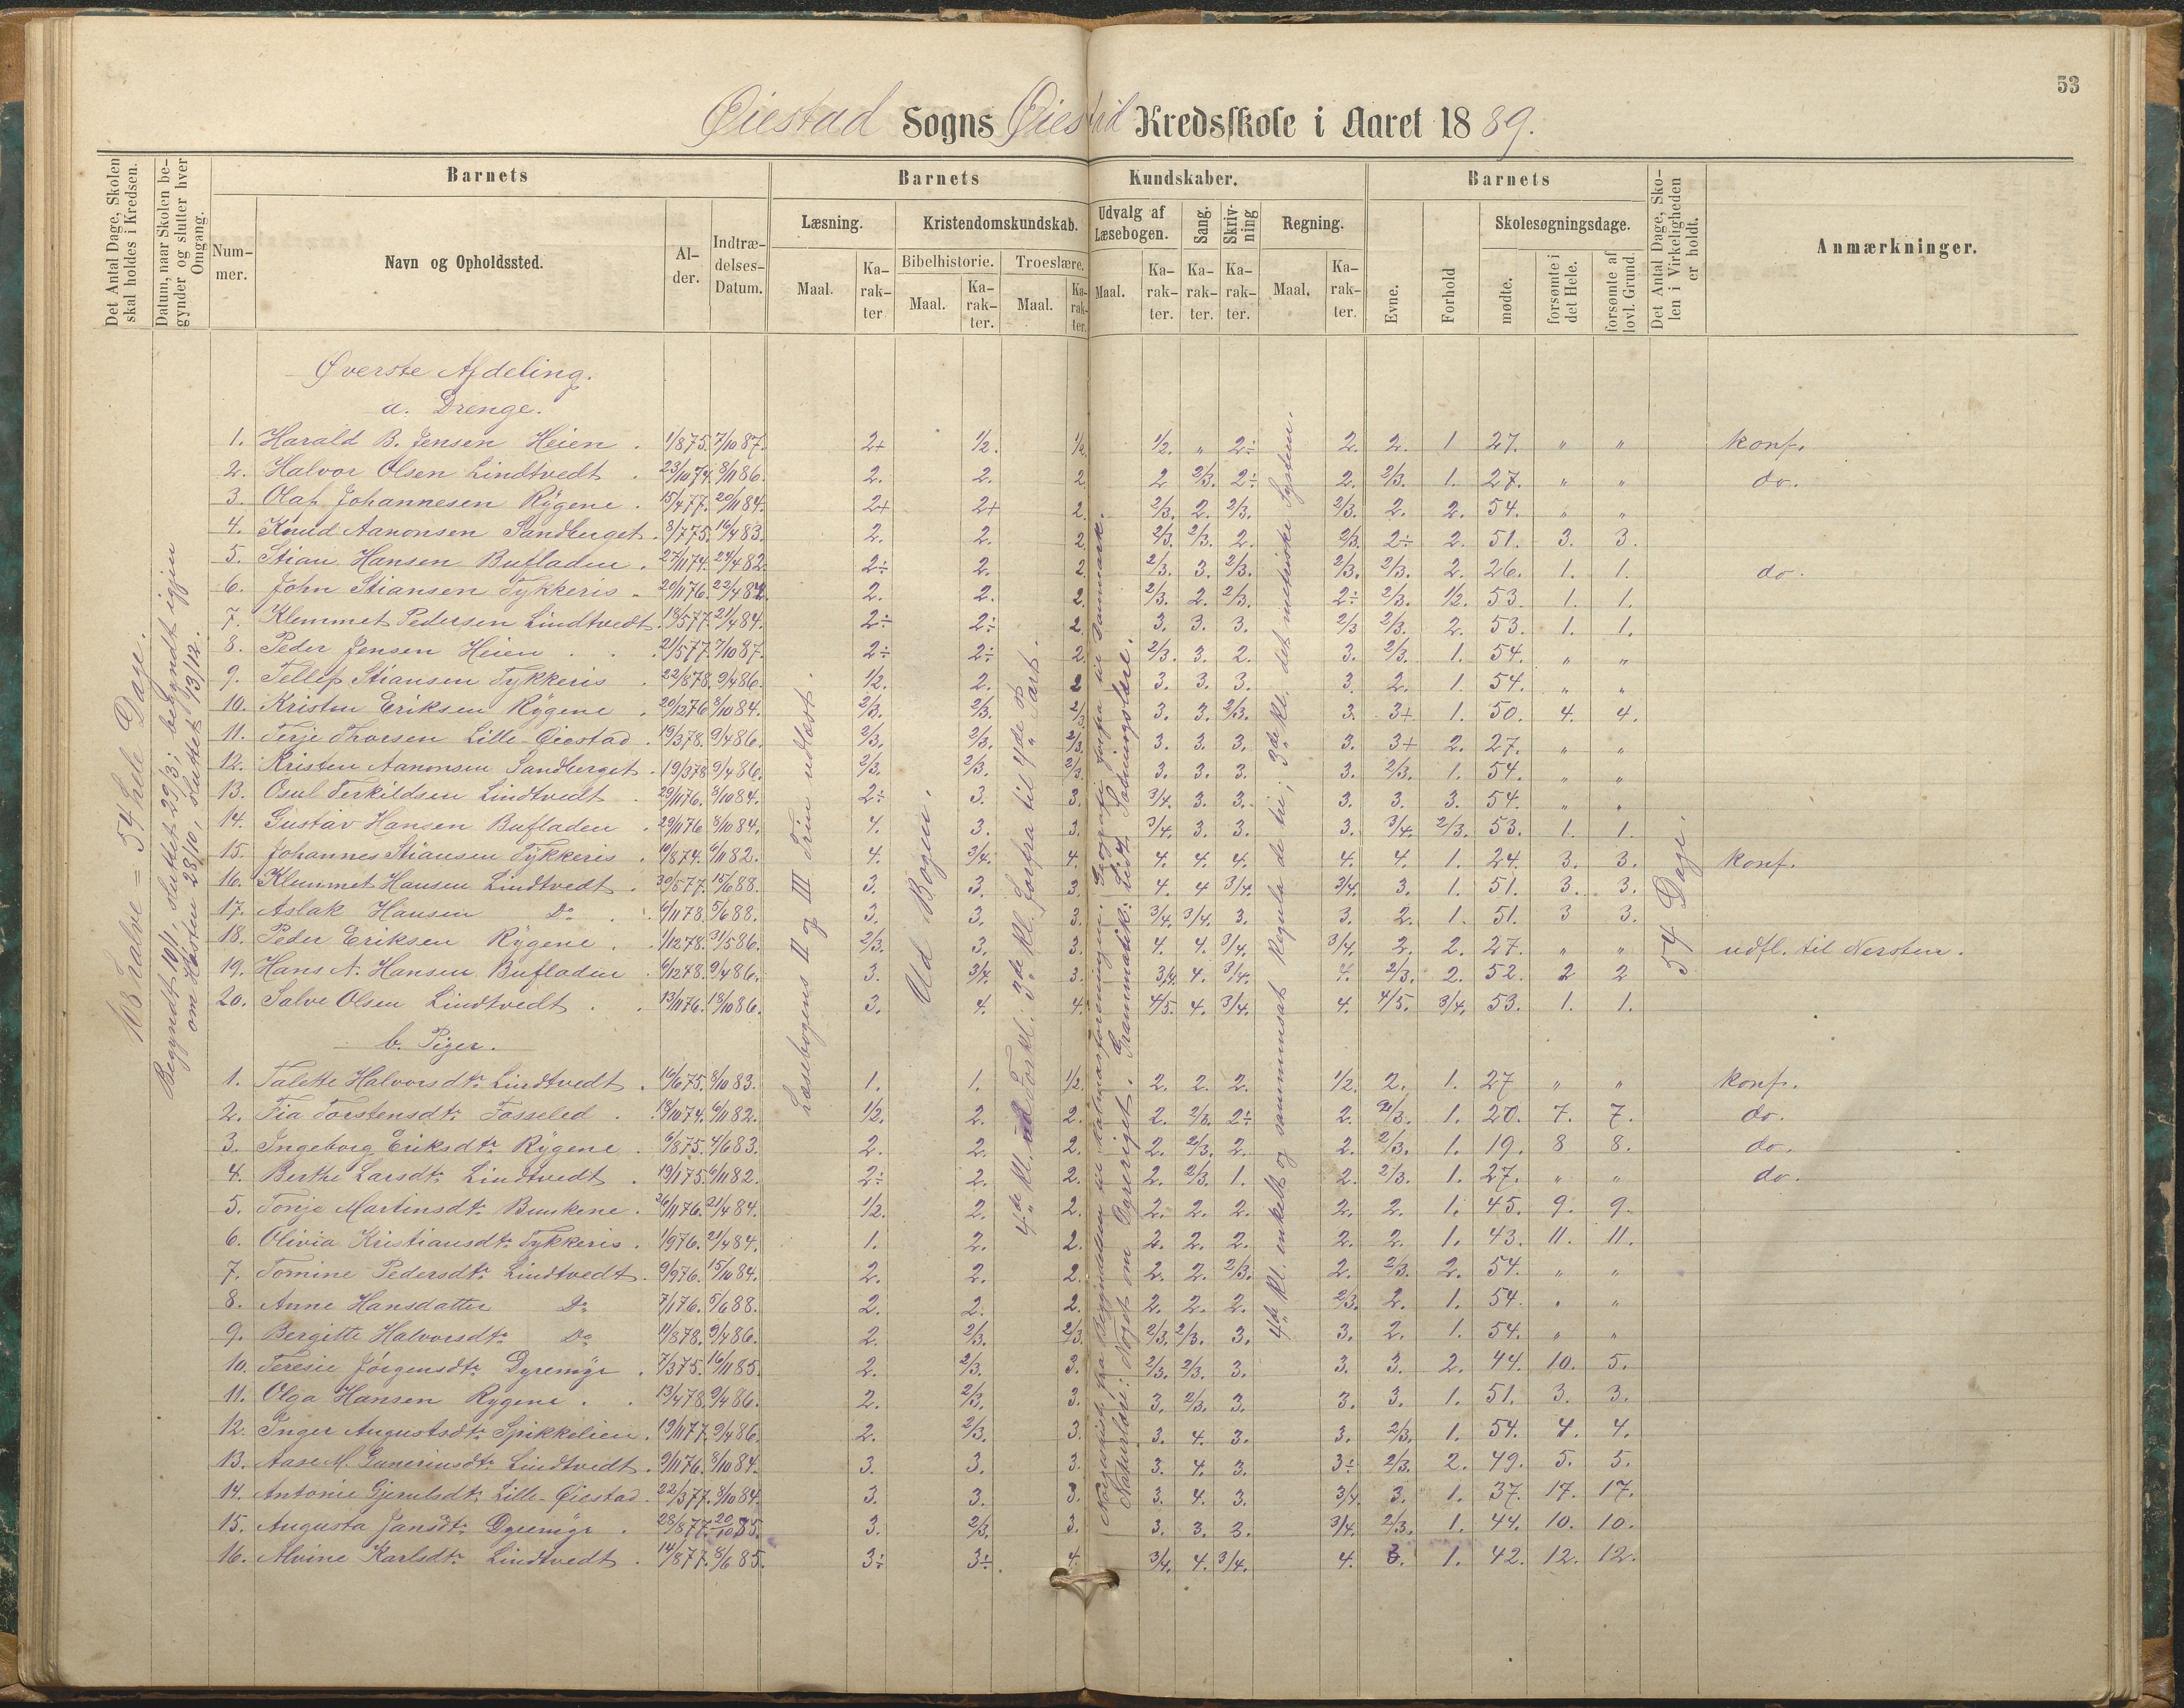 53
Øiestad Sogns Øiestad Kredsskole i Aaret 1889.
Det Antal Dage, Skolen skal holdes i Kredsen.
Datum, naar Skolen begynder og slutter hver Omgang.
Barnets
Nummer.
Navn og Opholdssted.
Alder.
Indtrædelses-Datum.
Barnets Kundskaber.
Læsning.
Maal.
Karakter
Kristendomskundskab.
Bibelhistorie.
Maal.
Karakter.
Troeslære.
Maal.
Karakter.
Udvalg af Læsebogen.
Maal.
Karakter.
Sang.
Karakter.
Skrivning
Karakter.
Regning.
Maal.
Karakter.
Barnets
Evne.
Forhold
Skolesøgningsdage.
mødte.
forsømte i det Hele.
forsømte af lovl. Grund.
Det Antal Dage, Skolen i Virkeligheden er holdt.
Anmærkninger.
108 halve = 54 hele Dage.
Begyndt 10/1, sluttet 29/3; begyndt igjen
om Høsten 28/10, sluttet 13/12.
Læsebogens II og III Trin udlæst.
Ud Bogen.
4de Kl. ud Forkl.: 3de Kl. forfra til 4de Part.
Naturlære: Noget om Dyreriget. Grammatik: Lidt Sætningslære.
4de Kl. enkelt og sammensat Regula de tri; 3de Kl. det metriske System.
54 Dage.
Øverste Afdeling.
a. Drenge.
1. Harald B. Jensen Heien . 1/8 75. 7/10 87. 2+ 1/2. 1/2. 1/2. " 2÷ 2. 2. 1 27. " " konf.
2. Halvor Olsen Lindtvedt . 23/10 74. 8/11 86. 2. 2. 2. 2 2/3. 2÷ 2. 2/3. 1. 27. " " do.
3. Olaf Johannesen Rÿgene . 15/4 77. 20/11 84. 2+ 2+ 2. 2/3. 2. 2/3. 2/3. 2. 2. 54. " "
4. Knud Aanonsen Sandberget . 3/7 75. 16/4 83. 2. 2. 2. 2/3. 2/3. 2. 2/3. 2÷ 2. 51. 3. 3.
5. Stian Hansen Bufladen . 27/11 74. 24/4 82. 2÷ 2. 2. 2/3. 3. 2/3. 2/3. 2/3. 2. 26. 1. 1. do.
6. John Stiansen Tykkeris . 20/11 76. 22/4 84. 2. 2. 2. 2/3. 2. 2/3. 2÷ 2/3. 1/2. 53. 1. 1.
7. Klemmet Pedersen Lindtvedt . 13/5 77. 21/4 84. 2÷ 2÷ 2. 3. 3. 3. 2/3 2/3. 2. 53. 1. 1.
8. Peder Jensen Heien . . 21/5 77. 7/10 87. 2÷ 2÷ 2. 2/3. 3. 2. 3. 2/3. 1. 54. " "
9. Tellef Stiansen Tykkeris . 22/8 78. 9/4 86. 1/2. 2. 2 3. 3. 3. 3. 2. 1. 54. " "
10. Kristen Eriksen Rÿgene . 20/12 76 8/10 84. 2/3. 2/3. 2/3 3. 3. 2/3. 3. 3+ 1. 50. 4. 4.
11. Terje Thorsen Lille-Øiestad . 19/3 78. 9/4 86. 2/3. 2/3. 2/3. 3. 3. 3. 3. 3+ 2. 27. " "
12. Kristen Aanonsen Sandberget . 19/3 78 9/4 86. 2/3. 2/3. 2/3. 3. 3. 3. 3. 2/3. 1. 54. " "
13. Osul Terkildsen Lindtvedt . 29/11 76. 8/10 84. 2÷ 3. 3. 3/4. 3. 3. 3. 3. 3. 54. " "
14. Gustav Hansen Bufladen . 29/11 76 8/10 84. 4. 3. 3. 3/4. 3. 3. 3. 3/4. 2/3. 53. 1. 1.
15. Johannes Stiansen Tÿkkeris . 10/8 74. 6/11 82. 4. 3/4. 4. 4. 4. 4. 4. 4. 1. 24. 3. 3. konf.
16. Klemmet Hansen Lindtvedt . 30/5 77. 15/6 88. 3. 3. 3. 4. 4 3/4. 3/4. 3. 1. 51. 3. 3.
17. Aslak Hansen Do . . 6/11 78. 5/6 88. 3. 3. 3. 3/4. 3/4. 3. 3. 2. 1. 51. 3 3.
18. Peder Eriksen Rÿgene . . 1/12 78. 31/5 86. 2/3. 3. 3. 4. 4. 3/4. 3/4. 2. 2. 27. " " udfl. til Nersten.
19. Hans A. Hansen Bufladen . 6/12 78. 9/4 86. 3. 3/4. 3. 3/4. 4. 3/4. 4. 2/3. 2. 52. 2 2
20. Salve Olsen Lindtvedt . . 13/11 76. 13/10 86. 3. 4. 4. 4/5. 4. 3/4. 4. 4/5. 3/4. 53. 1. 1.
b. Piger.
1. Talette Halvorsdtr. Lindtvedt . 16/6 75. 8/10 83. 1. 1. 1/2. 2. 2. 2. 1/2. 2. 1. 27 " " konf.
2. Tia Torstensdtr. Fosseled . 18/10 74. 6/11 82. 1/2. 2. 2. 2. 2/3. 2÷ 2. 2/3. 1. 20. 7. 7. do.
3. Ingeborg Eriksdtr. Rÿgene . 6/8 75. 4/6 83. 2. 2. 2. 2. 2/3. 2. 2. 2/3. 1. 19. 8 8. do.
4. Berthe Larsdtr. Lindtvedt . 19/1 75. 6/11 82. 2÷ 2. 2. 2. 2/3. 1. 2. 2/3. 1. 27. " " do.
5. Tonje Martinsdtr. Buskene . 26/11 76. 21/4 84. 1/2. 2. 2. 2. 2. 2. 2. 2. 1. 45. 9. 9.
6. Olivia Kristiansdtr. Tykkeris . 1/9 76. 21/4 84. 1. 2. 2. 2. 2. 2. 2. 2. 1. 43. 11. 11.
7. Tomine Pedersdtr. Lindtvedt . 9/9 76. 15/10 84. 2. 2. 2. 2. 2. 2/3. 2. 2/3. 2. 54. " "
8. Anne Hansdatter Do 7/1 76. 5/6 88. 2. 2. 2. 2. 2. 2. 2/3. 2. 1. 54. " "
9. Bergitte Halvorsdtr. Do 11/8 78. 9/4 86. 2. 2/3. 2/3. 2/3. 2/3. 3. 3. 2. 1. 54. " "
10. Teresie Jörgensdtr. Dyremÿr . 7/3 75. 16/11 85. 2. 2/3. 3. 2/3. 2/3. 3. 3. 3. 2. 44. 10. 5.
11. Olga Hansen Rygene . . 13/4 78. 9/4 86. 2. 2/3. 3. 3. 2/3. 3. 3. 3. 1. 51. 3. 3.
12. Inger Augustsdtr. Spikkelien . 19/11 77. 9/4 86. 2. 2/3. 3. 3. 4. 3. 3. 2/3. 1. 54. 4. 4.
13. Aase M. Gunerinsdtr. Lindtvedt . 9/11 76. 8/10 84. 3. 3. 3. 3. 4. 3. 3÷ 2/3. 2. 49. 5. 5.
14. Antonie Gjerulsdtr. Lille-Øiestad . 22/3 77. 8/10 84. 3. 3. 3. 3. 4. 3. 3/4. 3. 1. 37. 17. 17.
15. Augusta Jansdtr. Dyremÿr . 28/8 77. 20/10 85. 3. 2/3. 3. 3. 3. 3. 3/4. 2/3. 1. 44. 10. 10.
16. Alvine Karlsdtr. Lindtvedt . 14/8 77. 8/6 85. 3÷ 3÷ 4. 3/4. 4. 3/4. 4. 3. 1. 42. 12. 12.